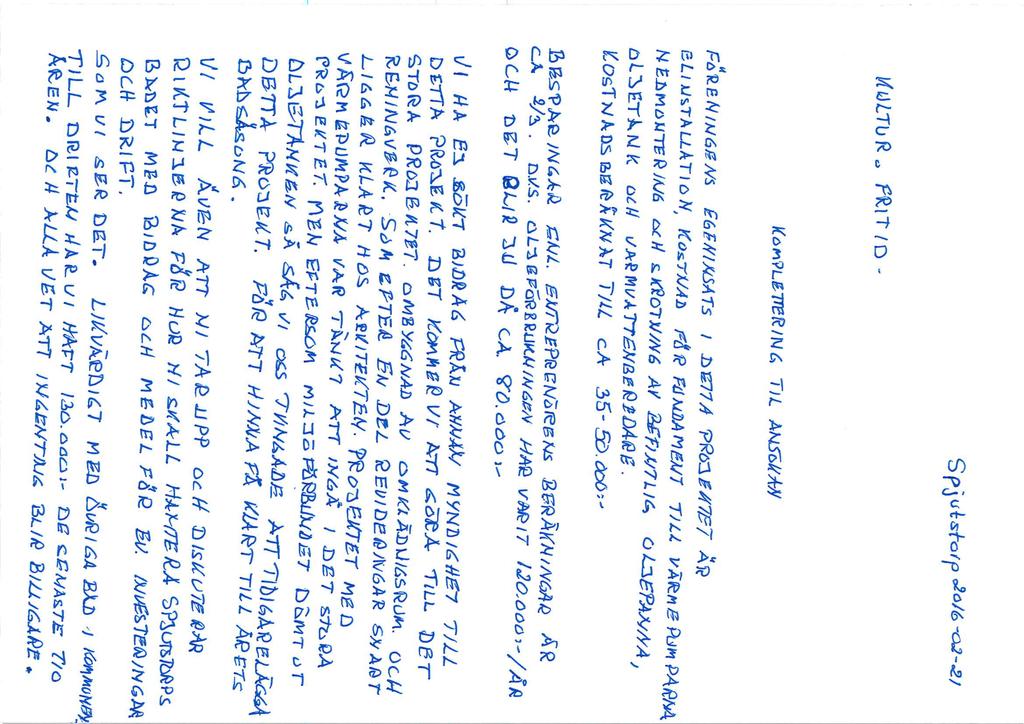 Spjutstorp 2016-02-21
KULTUR. FRITID-
KOMPLETTERING TIL ANSÖKAN
FÖRENINGENS EGENINSATS I DETTA PROJEKTET ÄR
ELINSTALLATION, KOSTNAD FÖR FUNDAMENT TILL VÄRMEPUMPARNA
NEDMONTERING OCH SKROTNING AV BEFINTLIG OLJEPANNA,
OLJETANK OCH VARMVATTENBEREDARE.
KOSTNADSBERÄKNAT TILL CA 35-50.000:-
BESPARINGAR ENL. ENTREPRENÖRENS BERÄKNINGAR ÄR
CA 2/3. DVS. OLJEFÖRBRUKNINGEN HAR VARIT 120.000:-/ÅR
OCH DET BLIR JU DÅ CA 80.000:-
VI HA EJ SÖKT BIDRAG FRÅN ANNAN MYNDIGHET TILL
DETTA PROJEKT. DET KOMMER VI ATT GÖRA TILL DET
STORA PROJEKTET. OMBYGGNAD AV OMKLÄDNIGSRUM. OCH
RENINGVERK. SOM EFTER EN DEL REVIDERINGAR SNART
LIGGER KLART HOS ARKITEKTEN. PROJEKTET MED
VÄRMEPUMPARNA VAR TÄNKT ATT INGÅ I DET STORA
PROJEKTET. MEN EFTERSOM MILJÖFÖRBUNDET DÖMT UT
OLJETANKEN SÅ SÅG VI OSS TVINGADE ATT TIDIGARELÄGGA
DETTA PROJEKT. FÖR ATT HINNA FÅ KLART TILL ÅRETS
BADSÄSONG.
VI VILL ÄVEN ATT NI TAR UPP OCH DISKUTERAR
RIKTLINJERNA FÖR HUR NI SKALL HANTERA SPJUTSTORPS
BADET MED BIDRAG OCH MEDEL FÖR EV. INVESTERINGAR
OCH DRIFT.
SOM VI SER DET. LIKVÄRDIGT MED ÖVRIGA BAD I KOMMUNEN
TILL DRIRTEN HAR VI HAFT 130.000:- DE SENASTE TIO
ÅREN. OCH ALLA VET ATT INGENTING BLIR BILLIGARE.